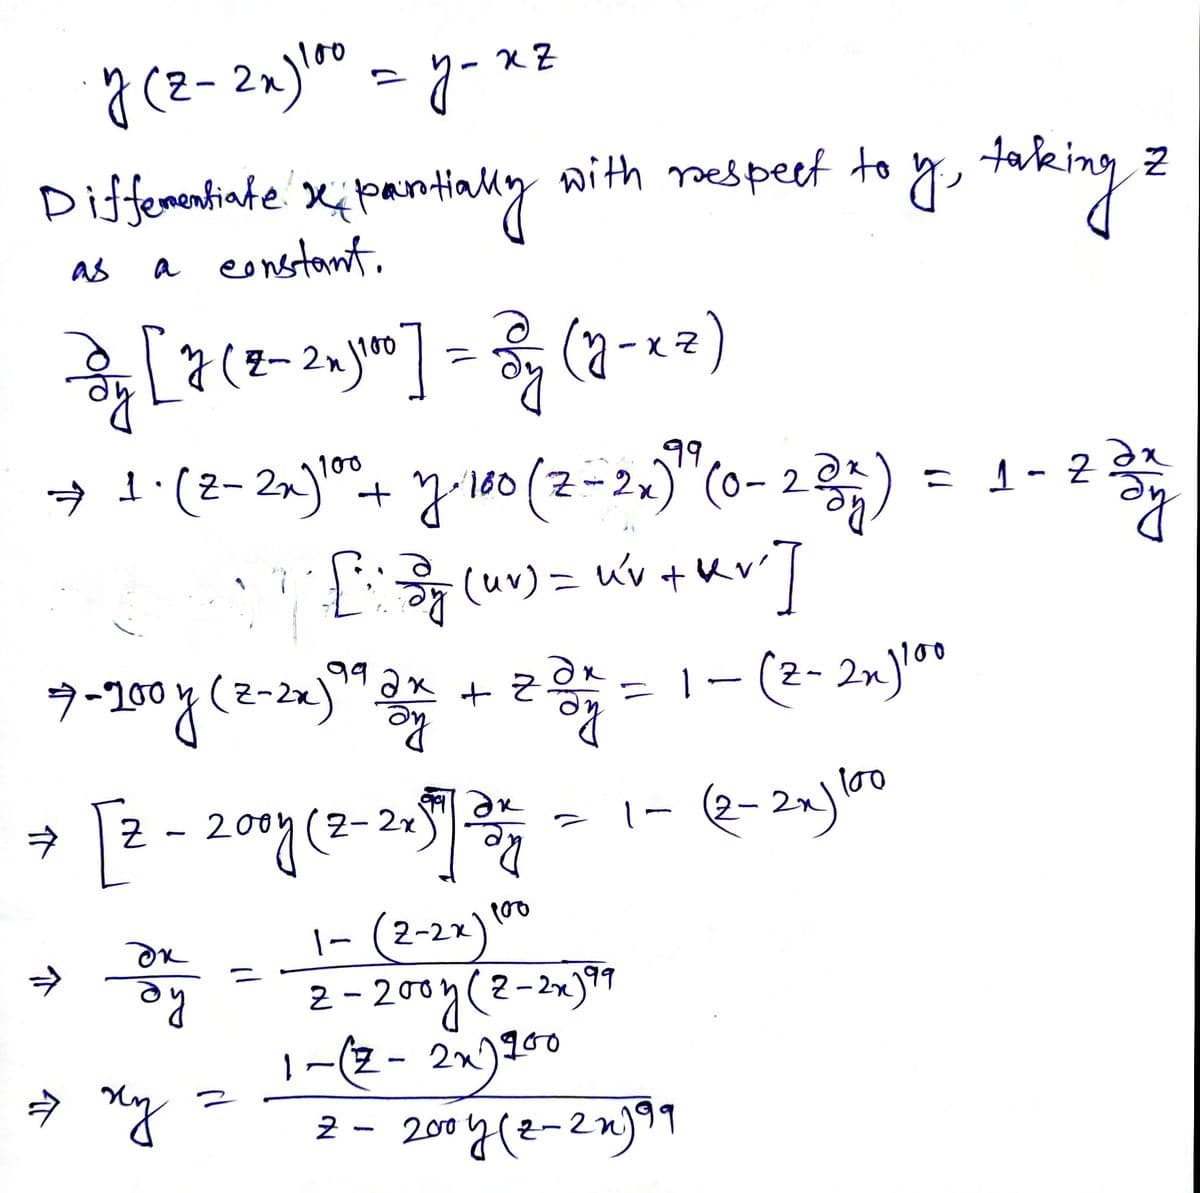 y(z-2x)^100 = y-xz
Differentiate x partially with respect to y, taking z
as a constant.
∂/∂y [y(z-2x)^100] = ∂/∂y (y-xz)
⇒ 1·(z-2x)^100 + y·100(z-2x)^99 (0-2 ∂x/∂y) = 1-z ∂x/∂y
[∵ ∂/∂y (uv) = u'v + uv']
⇒ -200y(z-2x)^99 ∂x/∂y + z ∂x/∂y = 1-(z-2x)^100
⇒ [z-200y(z-2x)^99] ∂x/∂y = 1-(z-2x)^100
⇒ ∂x/∂y = (1-(z-2x)^100)/(z-200y(z-2x)^99)
⇒ x_y = (1-(z-2x)^100)/(z-200y(z-2x)^99)